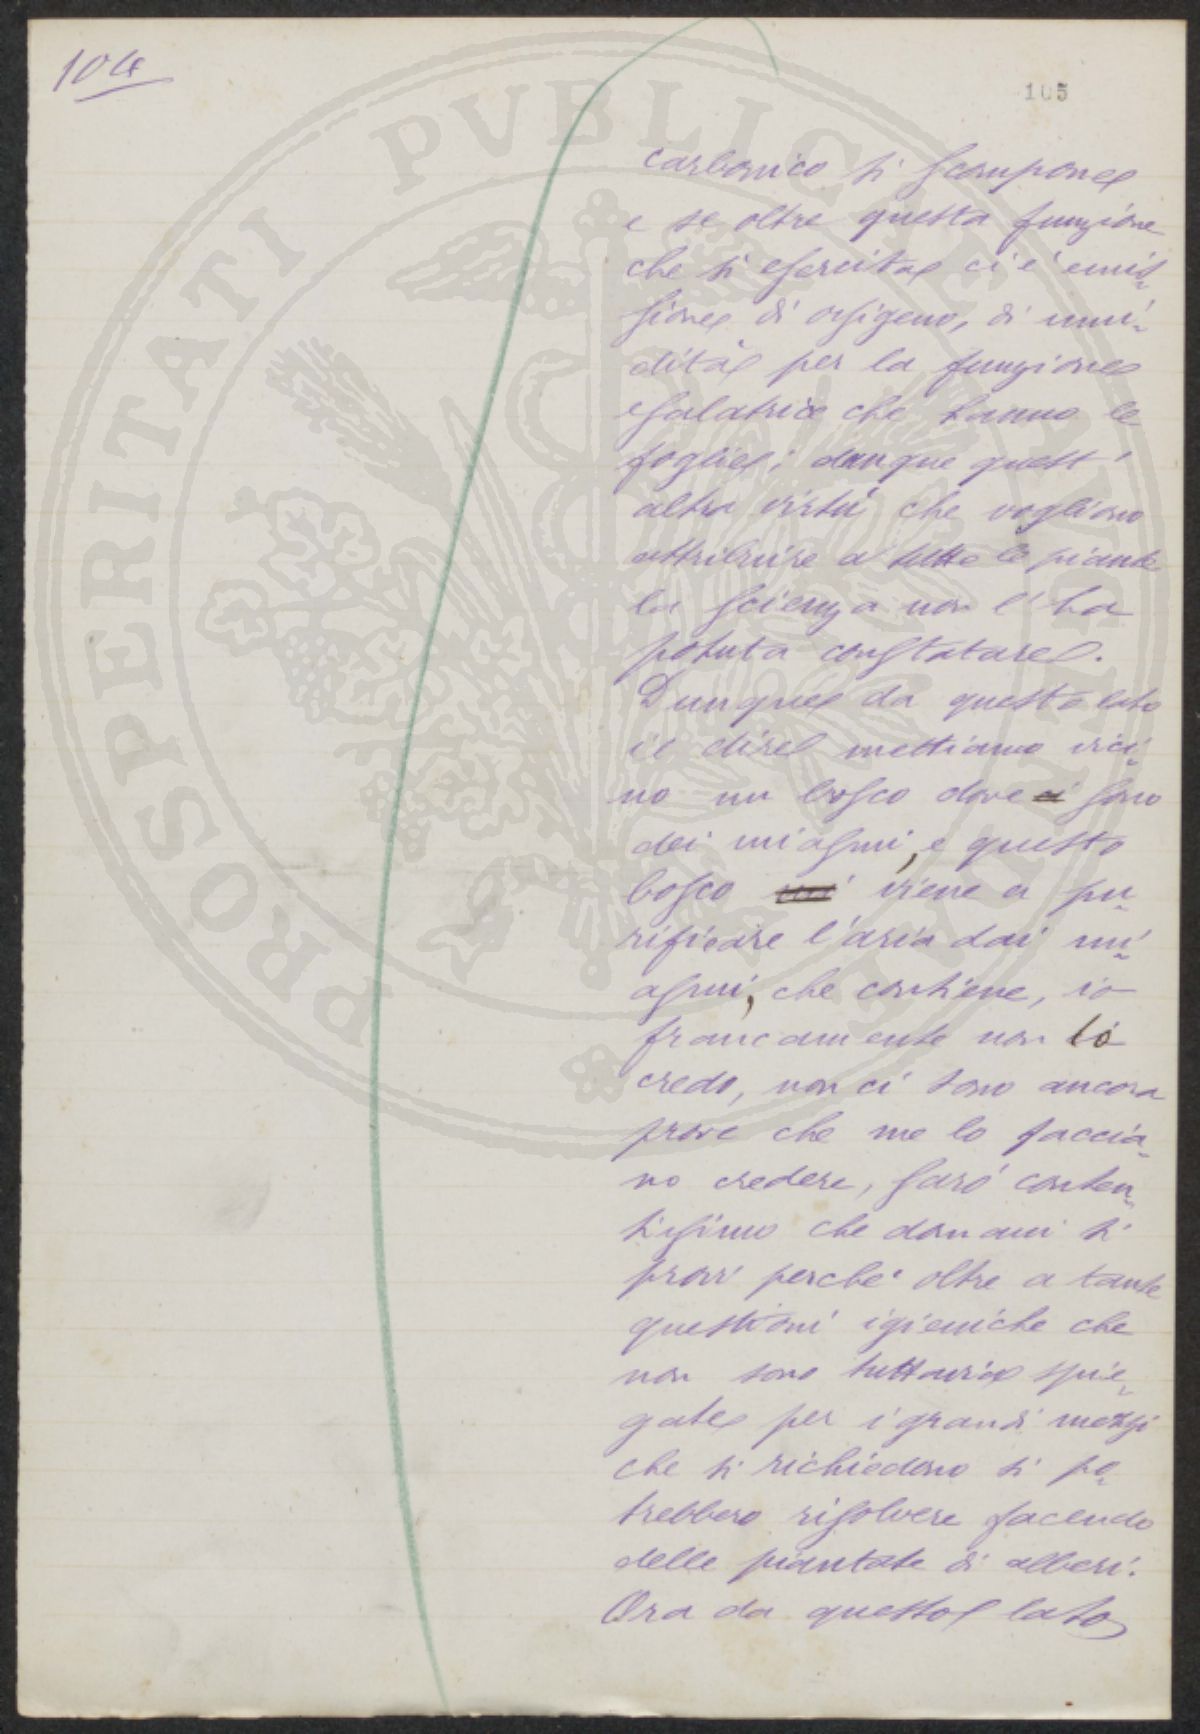 104
105
carbonico si scompone
e se oltre questa funzione
che si esercita ci é emis-
sione di ossigeno, di umi-
dità per la funzione
esalatrice che hanno le
foglie; dunque quest'
altra virtú che vogliono
attribuire a tutte le piante
la scienza non l'ha
potuta constatare.
Dunque da questo lato
il dire mettiamo vici-
no un bosco dove ci sono
dei miasmi, e questo
bosco viene a pu-
rificare l'aria dai mi-
asmi, che contiene, io
francamente non lo
credo, non ci sono ancora
prove che me lo faccia-
no credere, saró conten-
tissimo che domani si
provi perché oltre a tante
questioni igieniche che
non sono tuttavia spie-
gate per i grandi mezzi
che si richiedono si po-
trebbero risolvere facendo
delle piantate di alberi.
Ora da questo lato
PROSPERITATI PVBLICAE AVGENDAE